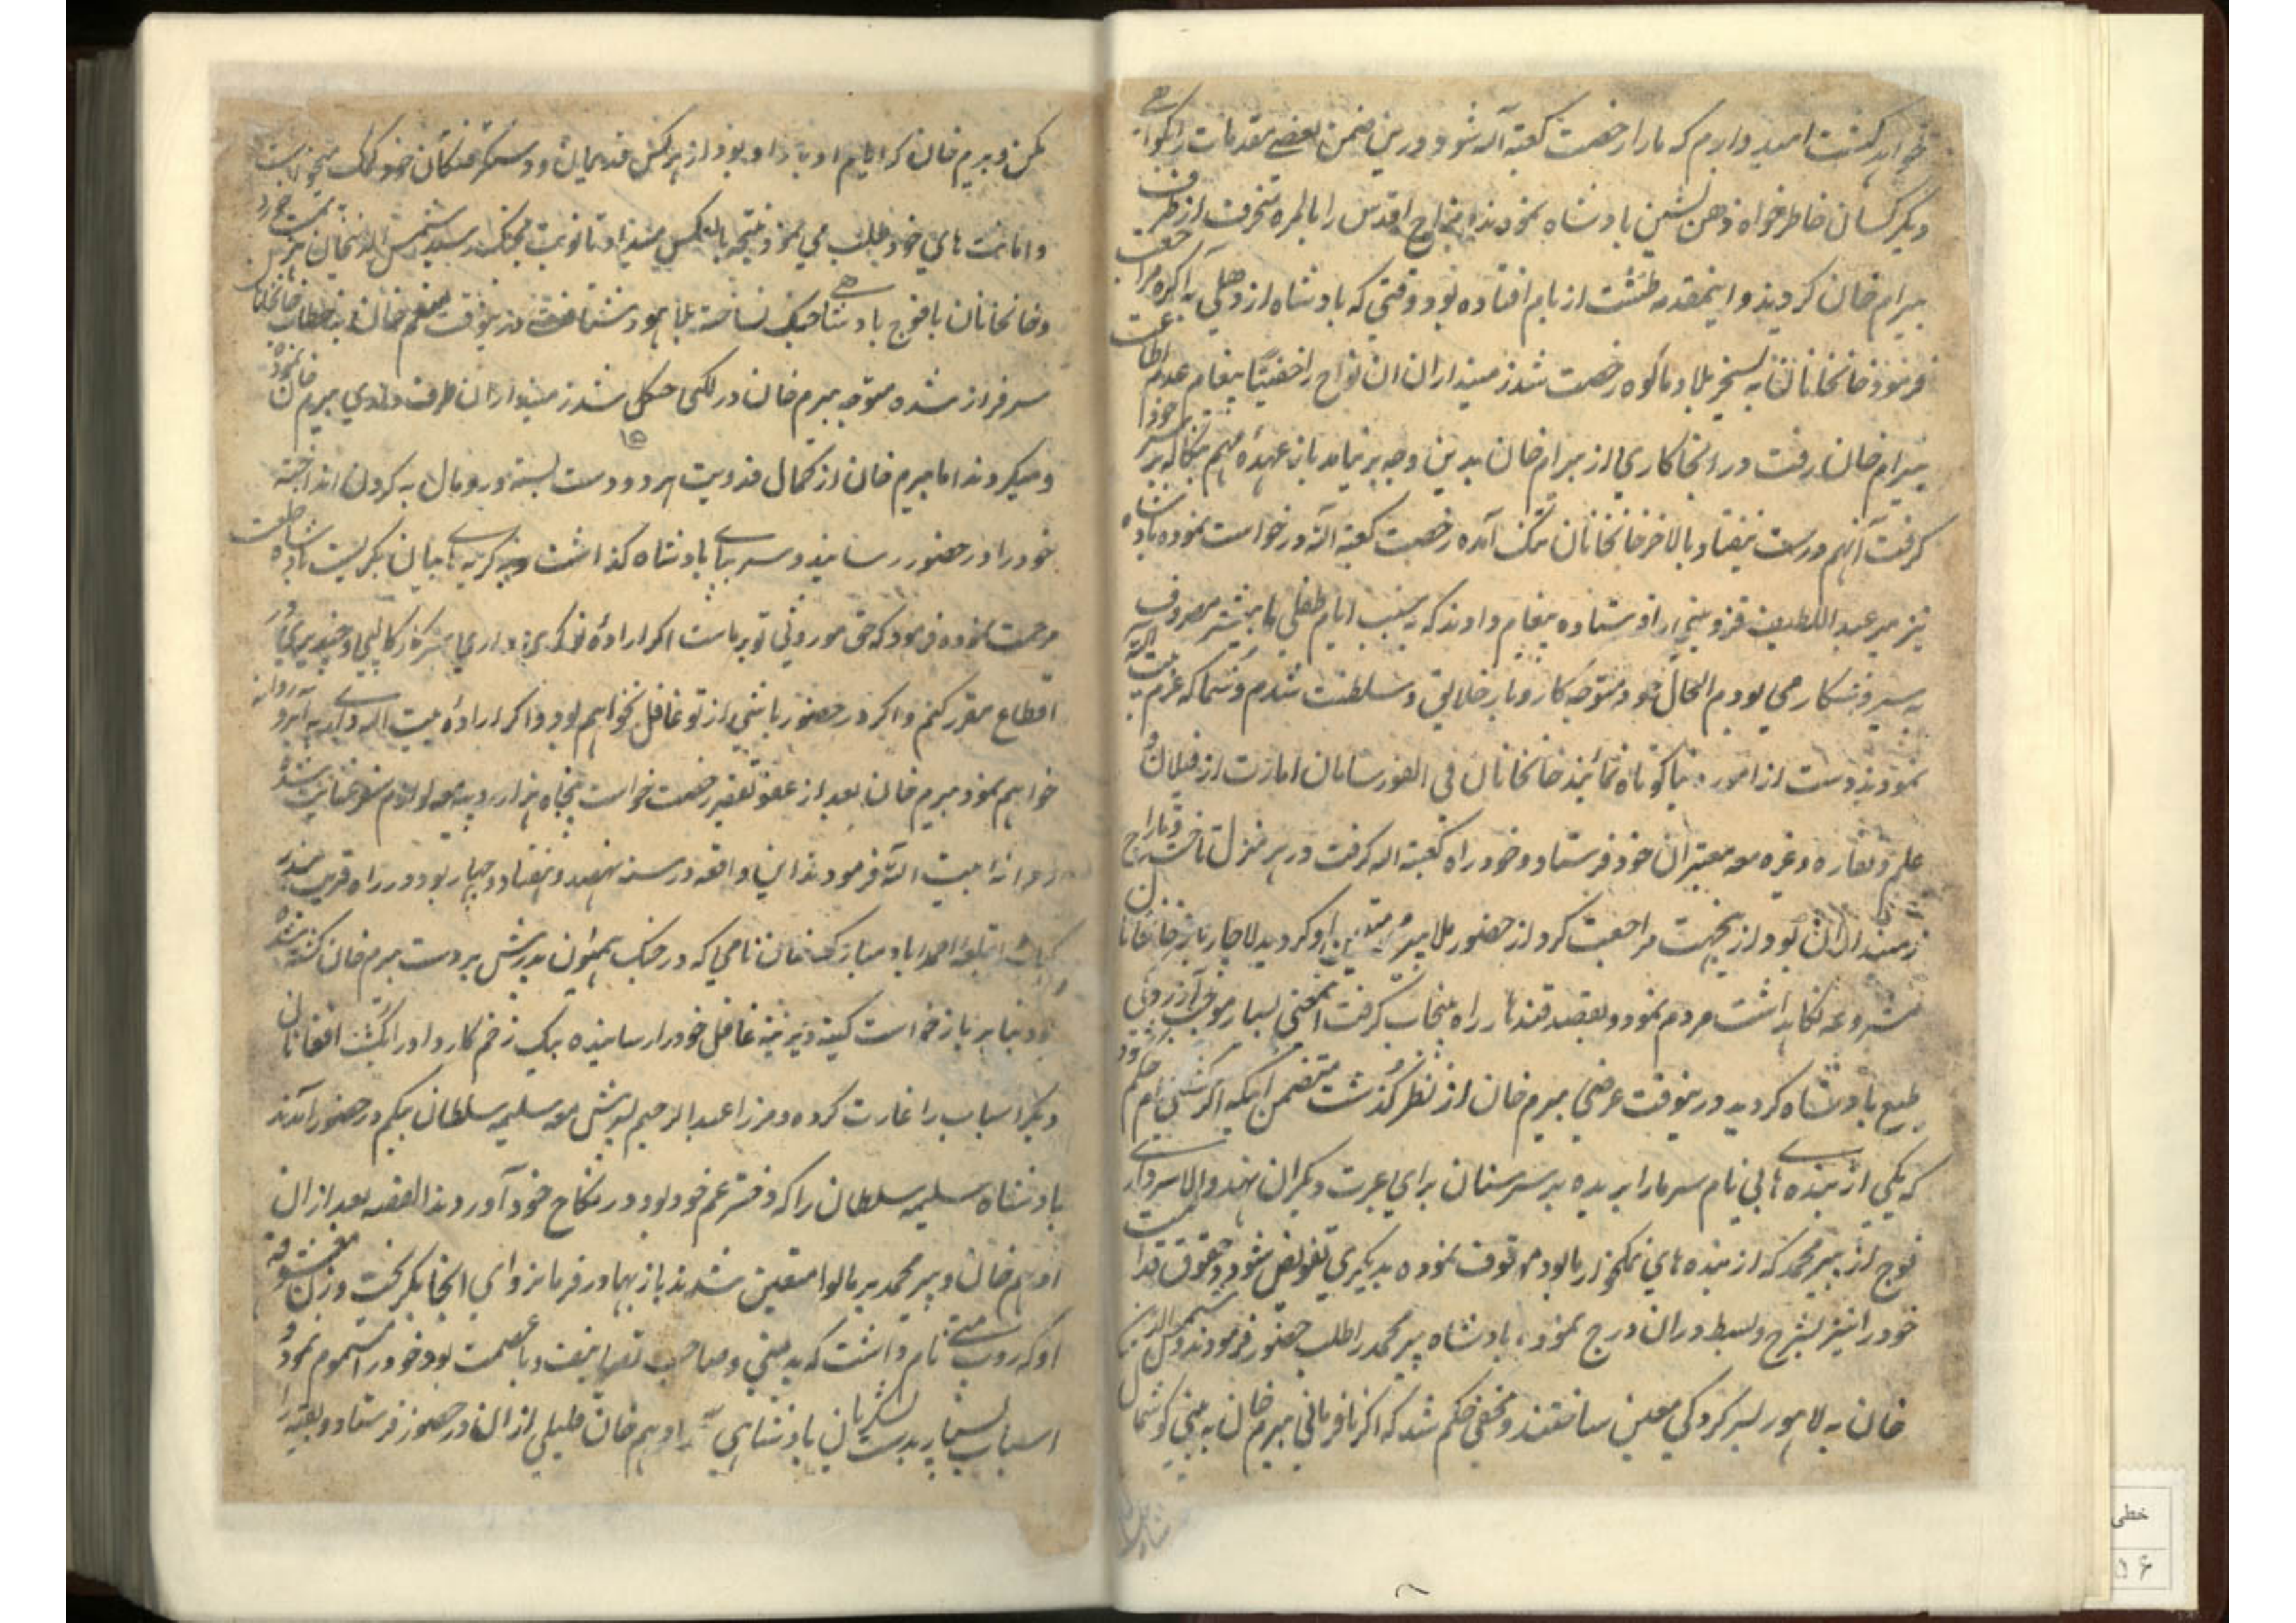 خواهد گشت امید دارم که مارا رخصت کعبة الله شود و درین ضمن بعضے مقدمات
دیگر کسان خاطرخواه ذهن نشین بادشاه نمودند مزاج اقدس را بالمره منحرف از طرف
بیرام خان کردند و اینمقدمه طشت از بام افتاده بود وقتی که بادشاه از دهلی به آگره مراجعت
فرمود خانخانان به تسخیر بلاد مالوه رخصت شد زمینداران ان نواح را خفیتاً پیغام عدم اطاعت
بیرام خان رفت در انجا کاری از بیرام خان بدین وجه بر نیامد باز عهدهٔ مهم بنگاله بر سر خود
گرفت آنهم درست نیفتاد بالاخر خانخانان تنگ آمده رخصت کعبة الله درخواست نموده بادشاه
نیز میر عبد اللطیف قزوینی را فرستاده پیغام دادند که بسبب ایام طفلی ما بیشتر مصروف
به سیر و شکار می بودم الحال خود متوجه کار و بار خلایق و سلطنت شدم و شما که عزم بیت الله
نمودید دست از امور دنیا کوتاه نمائید خانخانان فی الفور سامان امارت از فیلان و
علم و نقاره و غیره معه معتبران خود فرستاد و خود راه کعبة الله گرفت در هر منزل تاخت و تاراج
زمینداران بود ازینجهت مراجعت کرد از حضور ملا پیر محمد متعین او گردید لاچار باز خانخانان
شروع نگاهداشت مردم نمود و بقصد قندهار راه پنجاب گرفت اینمعنی بسیار موجب آزردگی
طبع بادشاه گردید درینوقت عرضی بیرم خان از نظر گذشت متضمن اینکه اگر کشتنی ام حکم شود
که یکی از بنده های بی نام سر مارا بریده بر سر سنان برای عبرت دیگران نهد والا سرداری
فوج از پیر محمد که از بنده های نمکخوار ما بود موقوف نموده بدیگری تفویض شود و حقوق قدامت
خود را نیز بشرح و بسط دران درج نمود بادشاه پیر محمد را طلب حضور فرمودند و شمس الدین
خان به لاهور بسرکردگی معین ساختند و مخفی حکم شد که اگر نافرمانی بیرم خان به بینی گوشمال
کن و بیرم خان که ایام ادبار او بود از هر کس قدیمیان و دستگرفتگان خود کمک میخواست
و امانت های خود طلب می نمود نتیجه بالعکس میداد تا نوبت بجنگ رسید شمس الدینخان
و خانخانان با فوج بادشاهی جنگ نساخته بلاهور شتافت درینوقت منعم خان به خطاب خانخانان
سرفراز شده متوجه بیرم خان در لکهی جنگل شد زمینداران ان طرف بیرم خان نموده
و میکردند اما بیرم خان از کمال فدویت هر دو دست بسته و رومال به گردن انداخته
خود را در حضور رسانید و سر بپای بادشاه گذاشت گریه های های بگریست بادشاه خلعت
مرحمت نموده فرمود که حق موروثی تو بر ماست اگر ارادهٔ نوکری داری سرکار کالپی و چندیری در
اقطاع مقرر کنم و اگر در حضور باشی از تو غافل نخواهم بود و اگر ارادهٔ بیت الله داری به آبرو روانه
خواهم نمود بیرم خان بعد از عفو تقصیر رخصت خواست پنجاه هزار روپیه عنایت شد
روانه بیت الله فرمودند این واقعه در سنه نهصد و هفتاد و چهار بود در راه قریب
احمداباد مبارک خان نامی که در جنگ هیمون پدرش بر دست بیرم خان کشته شده
بود بنا بر بازخواست کینه دیرینه غافل خود را رسانیده بیک زخم کار او را کشت افغانان
دیگر اسباب را غارت کرده و مرزا عبد الرحیم پورش معه سلیمه سلطان بیگم در حضور آمدند
بادشاه سلیمه سلطان را که دختر عم خود بود در نکاح خود آوردند القصه بعد ازان
ادهم خان و پیر محمد بر مالوا متعین شدند بازبهادر فرمانروای انجا بگریخت و زن معشوقه
او که روپ متے نام داشت که بد مینی و صاحب تصانیف و با عصمت بود خود را مسموم نمود و
اسباب بسیار بدست لشکریان بادشاهی ادهم خان قلیلی ازان در حضور فرستاد و بقیه را